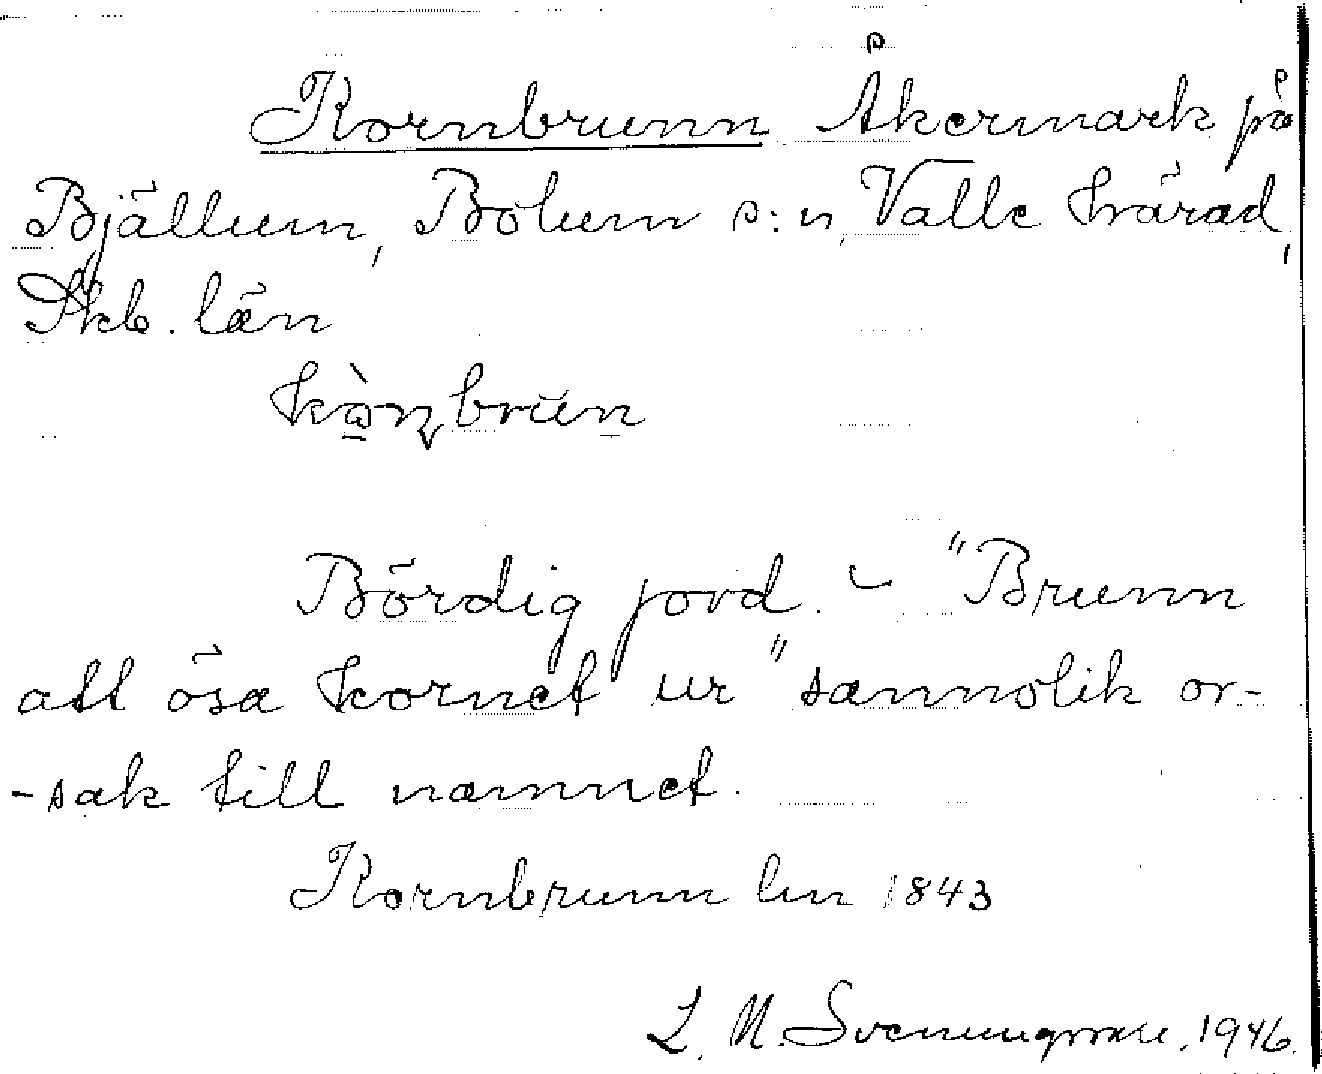 Kornbrunn Åkermark på
Bjällum, Bolum s:n, Valle härad,
Skb. län
Bördig jord. – "Brunn
att ösa kornet ur" sannolik or-
-sak till namnet.
Kornbrunn lm 1843
L. M. Svenungsson, 1946.